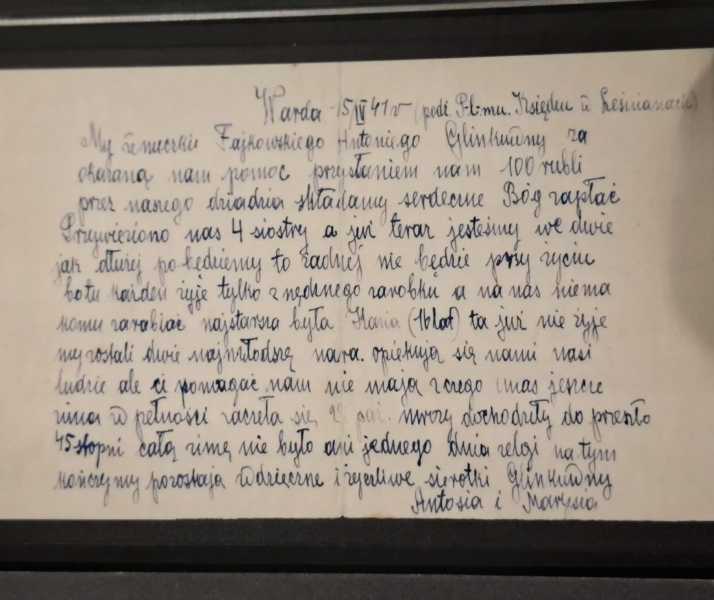 Warda 15 IV 41 r (podl. P-l-mu. Księdzu w Leśnianach)
My Wnuczki Fajkowskiego Antoniego Glinkówny za
okazaną nam pomoc przysłaniem nam 100 rubli
przez naszego dziadzia składamy serdeczne Bóg zapłać
Przywieziono nas 4 siostry a już teraz jesteśmy we dwie
jak dłużej pobędziemy to żadnej nie będzie przy życiu
bo tu każden żyje tylko z nędznego zarobku a na nas niema
komu zarabiać najstarsza była Hania (16 lat) ta już nie żyje
my zostali dwie najmłodszą nara. opiekują się nami nasi
ludzie ale ci pomagać nam nie mają z czego u nas jeszcze
zima w pełności zaczęła się paź. mrozy dochodziły do przeszło
45 stopni całą zimę nie było ani jednego dnia relgi na tym
kończymy pozostają wdzięczne i życzliwe sierotki Glinkówny
Antosia i Marysia